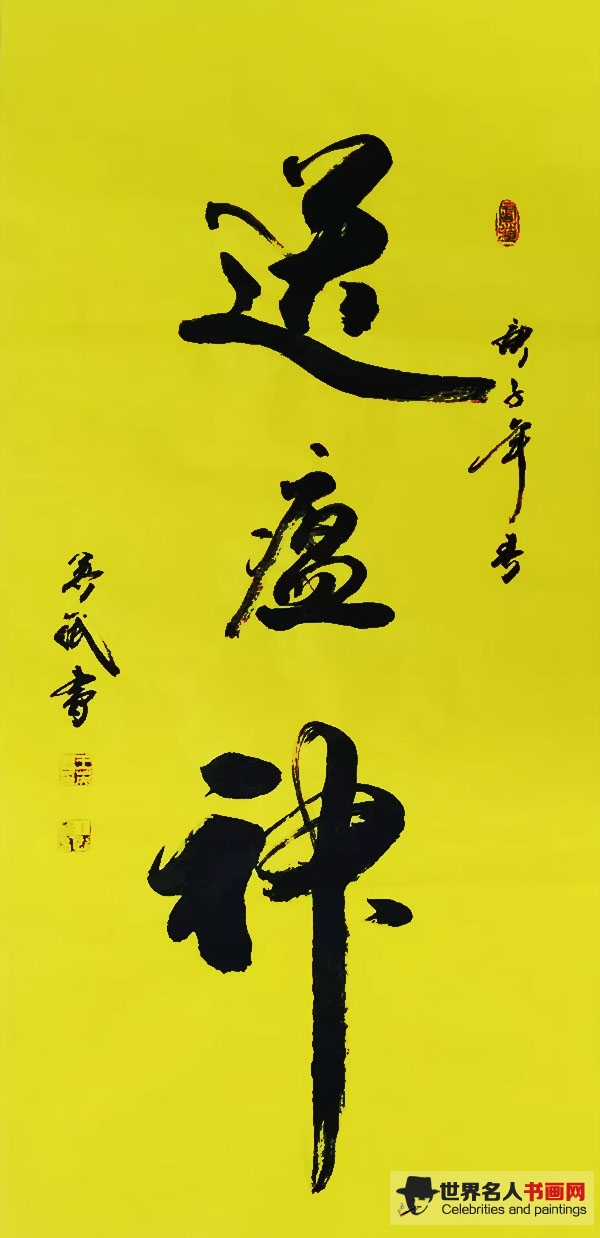 庚子年春
送瘟神
书
世界名人书画网
Celebrities and paintings